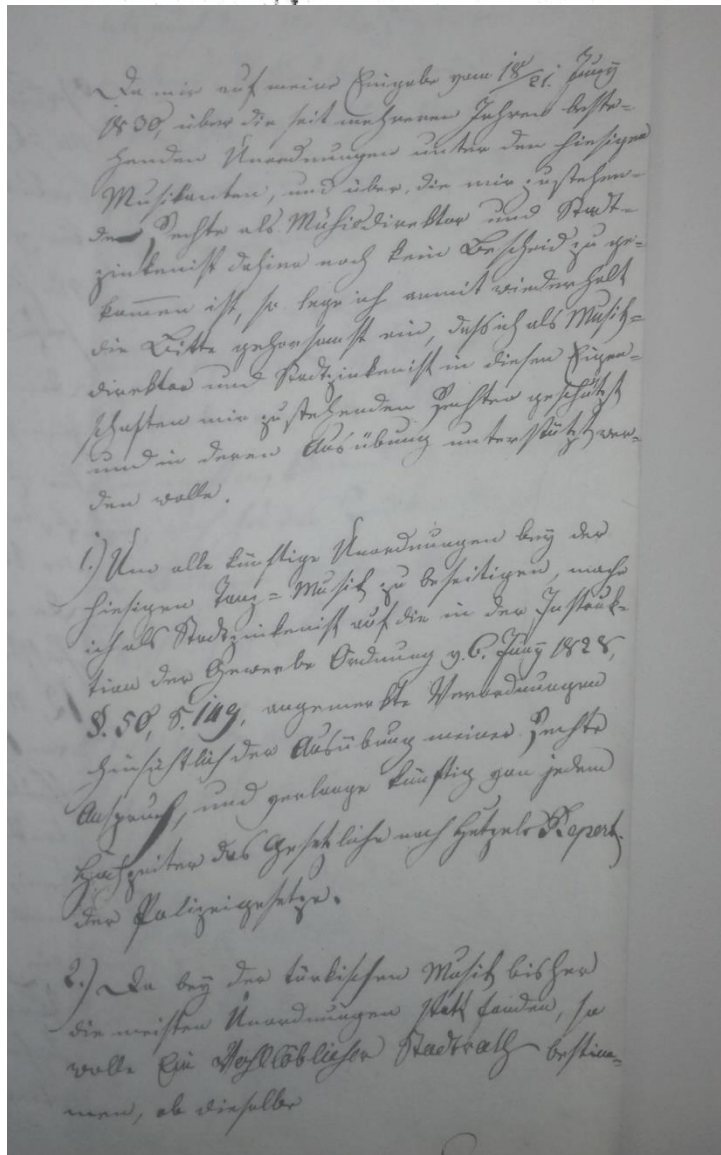 Da mir auf meine Eingabe vom 18/21. Juny
1830, über die seit mehreren Jahren beste-
henden Unordnungen unter den hiesigen
Musikanten, und über die mir zustehen-
den Rechte als Musikdirektor und Stadt-
zinkenist dahier noch kein Bescheid zu ge-
kommen ist, so lege ich anmit wiederholt
die Bitte gehorsamst ein, daß ich als Musik-
direktor und Stadtzinkenist in diesen Eigen-
schaften mir zustehenden Rechten geschützt
und in deren Ausübung unterstützt wer-
den wolle.
1.) Um alle künftige Unordnungen bey der
hiesigen Tanz-Musik zu beseitigen, mache
ich als Stadtzinkenist auf die in der Instruk-
tion der Gewerbe Ordnung v. 6. Juny 1828,
§. 50, S. 149, angemerkte Verordnungen
hinsichtlich der Ausübung meiner Rechte
Anspruch, und verlange künftig von jedem
Hochzeiter das Gesetzliche nach Repert.
der Polizeigesetze.
2.) Da bey der türkischen Musik bisher
die meisten Unordnungen statt fanden, so
wolle Ein Wohllöblicher Stadtrath bestim-
men, ob dieselbe